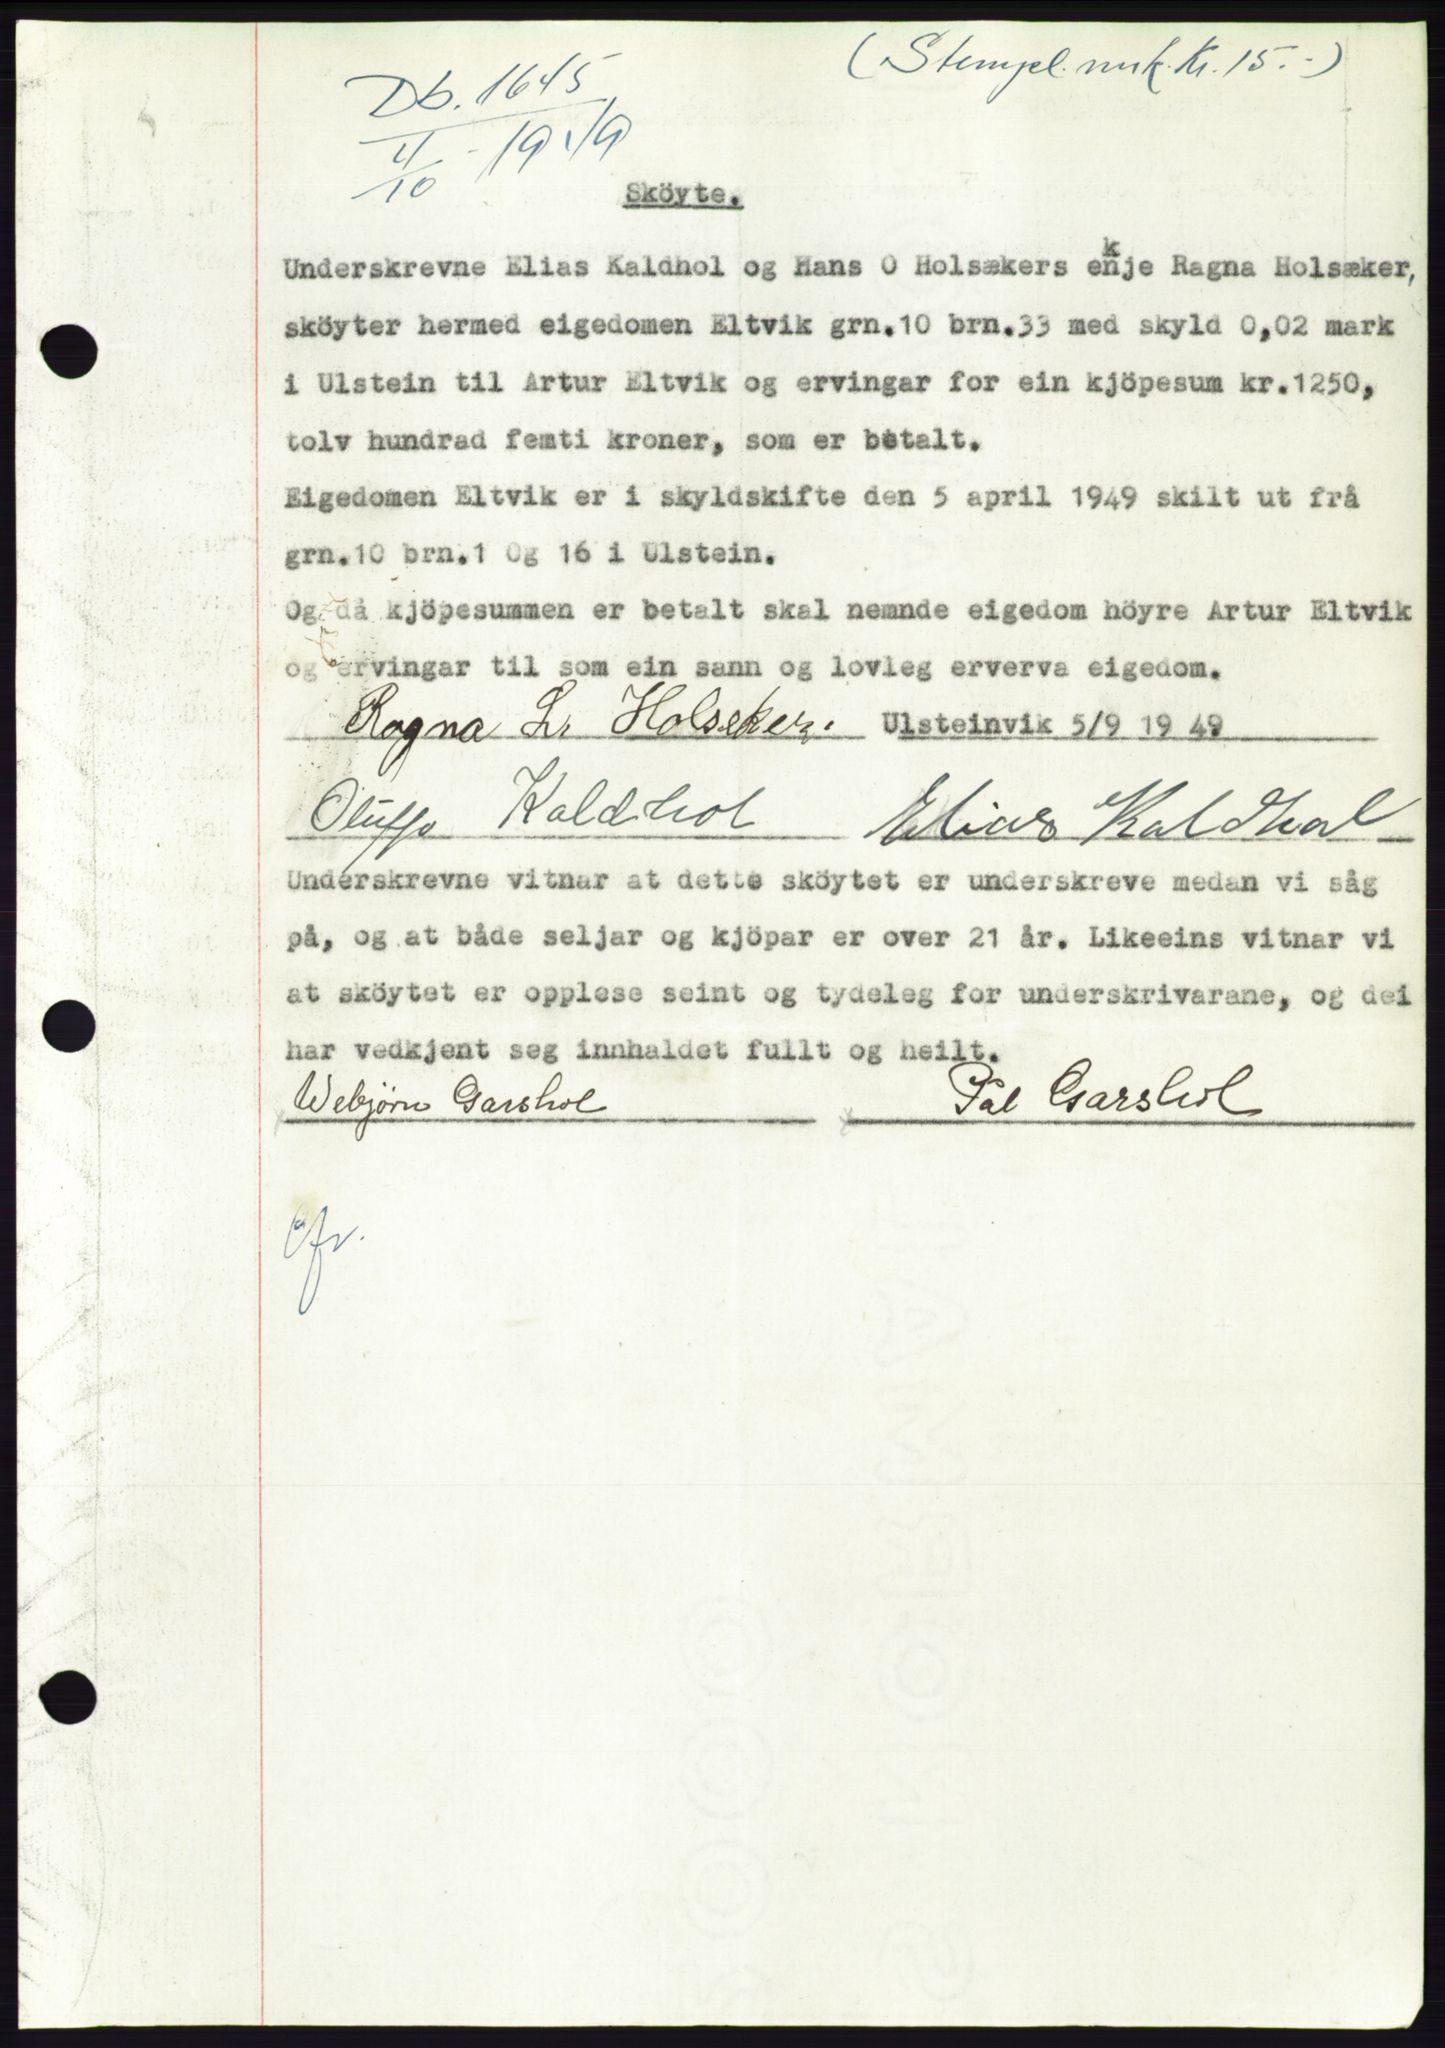 (Stempel.mrk.kr.15.-)
Db. 1645
4/10 - 1949
Sköyte.
Underskrevne Elias Kaldhol og Hans O Holsækers enkje Ragna Holsæker,
sköyter hermed eigedomen Eltvik grn.10 brn.33 med skyld 0,02 mark
i Ulstein til Artur Eltvik og ervingar for ein kjöpesum kr.1250,
tolv hundrad femti kroner, som er betalt.
Eigedomen Eltvik er i skyldskifte den 5 april 1949 skilt ut frå
grn.10 brn.1 Og 16 i Ulstein.
Og då kjöpesummen er betalt skal nemnde eigedom höyre Artur Eltvik
og ervingar til som ein sann og lovleg erverva eigedom.
Ragna L. Holseker. Ulsteinvik 5/9 19 49
Oluffa Kaldhol Elias Kaldhol
Underskrevne vitnar at dette sköytet er underskreve medan vi såg
på, og at både seljar og kjöpar er over 21 år. Likeeins vitnar vi
at sköytet er opplese seint og tydeleg for underskrivarane, og dei
har vedkjent seg innhaldet fullt og heilt.
Webjørn Garshol Pål Garshol